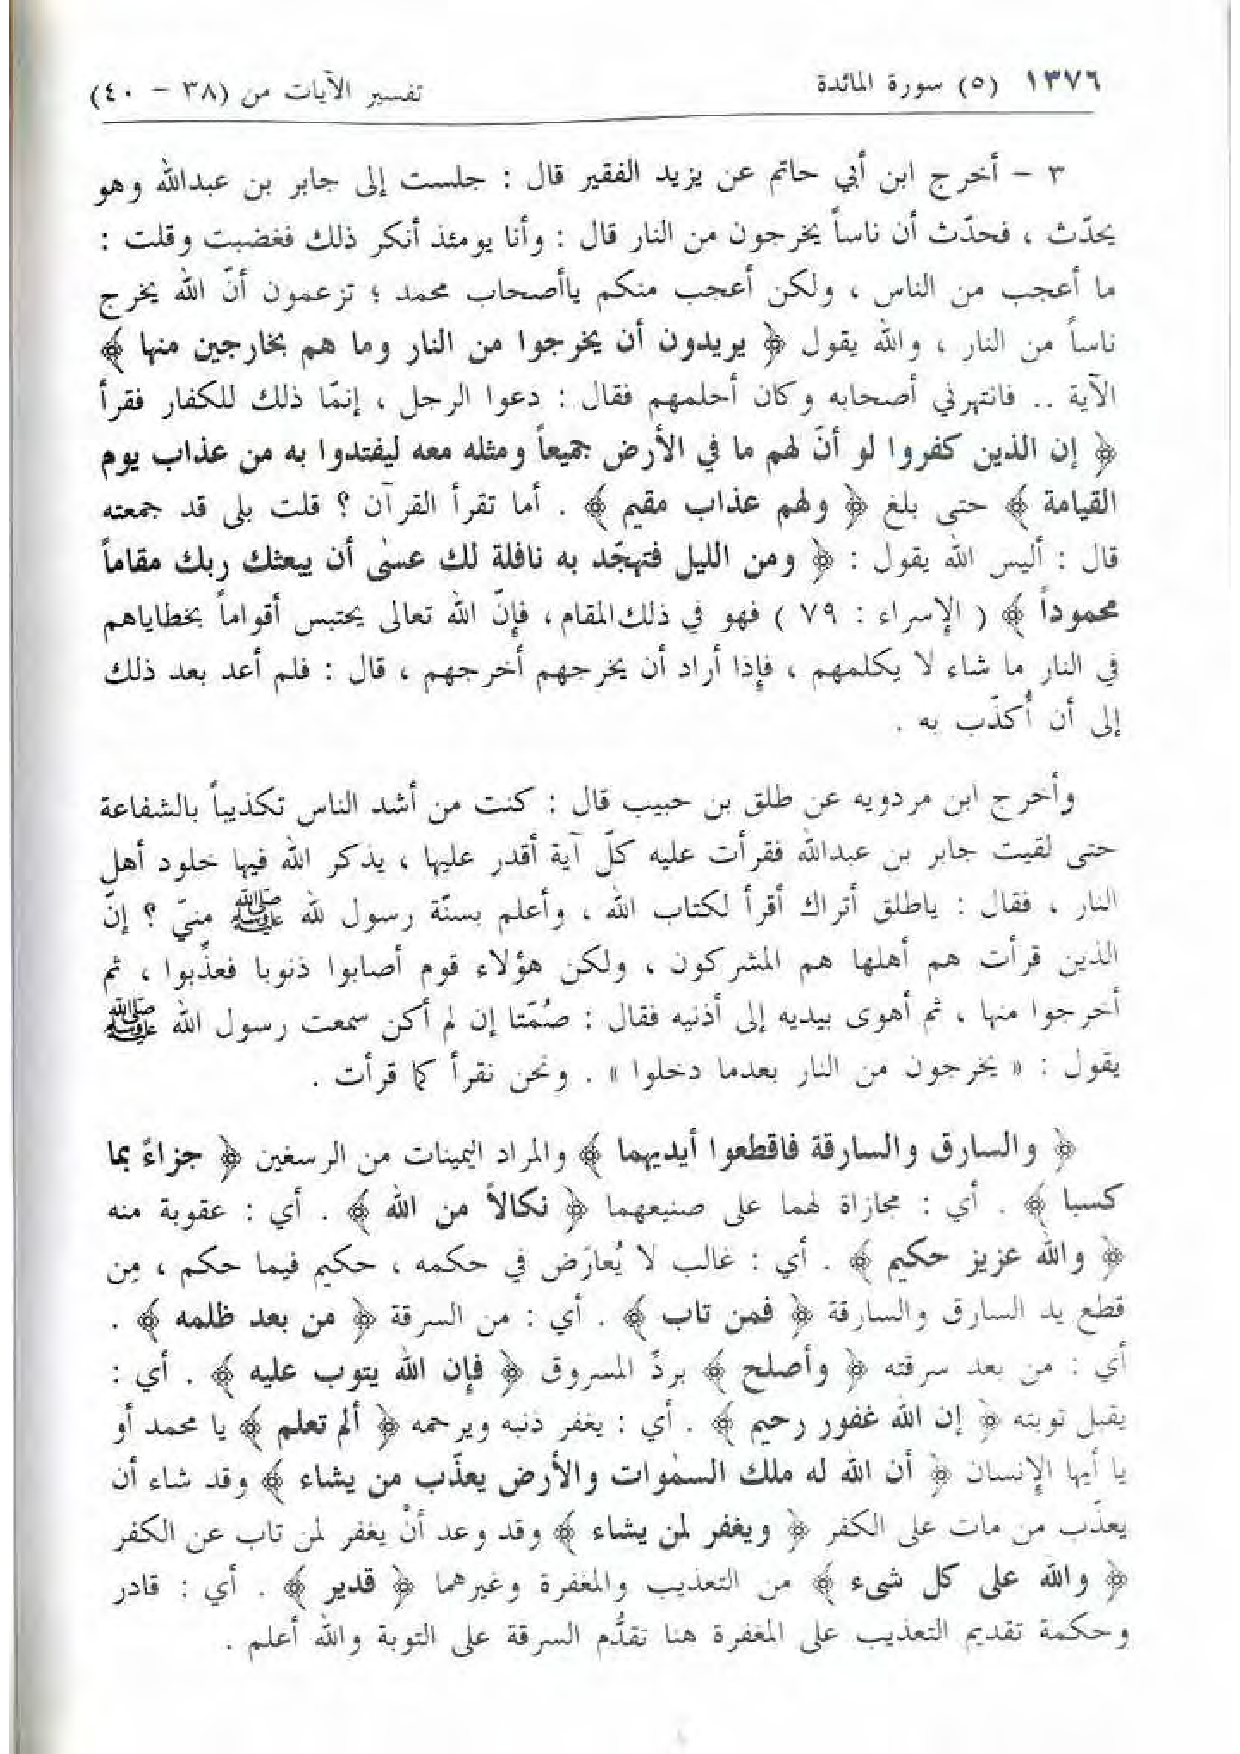 ١٣٧٦ (٥) سورة المائدة تفسير الآيات من (٣٨ - ٤٠)
٣ - أخرج ابن أبي حاتم عن يزيد الفقير قال : جلست إلى جابر بن عبدالله وهو
يحدّث ، فحدّث أن ناساً يخرجون من النار قال : وأنا يومئذ أنكر ذلك فغضبت وقلت :
ما أعجب من الناس ، ولكن أعجب منكم ياأصحاب محمد ؛ تزعمون أنّ الله يخرج
ناساً من النار ، والله يقول ﴿ يريدون أن يخرجوا من النار وما هم بخارجين منها ﴾
الآية .. فانتهرني أصحابه وكان أحلمهم فقال : دعوا الرجل ، إنمّا ذلك للكفار فقرأ
﴿ إن الذين كفروا لو أنّ لهم ما في الأرض جميعاً ومثله معه ليفتدوا به من عذاب يوم
القيامة ﴾ حتى بلغ ﴿ ولهم عذاب مقيم ﴾ . أما تقرأ القرآن ؟ قلت بلى قد جمعته
قال : أليس الله يقول : ﴿ ومن الليل فتهجّد به نافلة لك عسىٰ أن يبعثك ربك مقاماً
محموداً ﴾ ( الإسراء : ٧٩ ) فهو في ذلك المقام ، فإنّ الله تعالى يحتبس أقواماً بخطاياهم
في النار ما شاء لا يكلمهم ، فإذا أراد أن يخرجهم أخرجهم ، قال : فلم أعد بعد ذلك
إلى أن أُكذّب به .
وأخرج ابن مردويه عن طلق بن حبيب قال : كنت من أشد الناس تكذيباً بالشفاعة
حتى لقيت جابر بن عبدالله فقرأت عليه كلّ آية أقدر عليها ، يذكر الله فيها خلود أهل
النار ، فقال : ياطلق أتراك أقرأ لكتاب الله ، وأعلم بسنّة رسول لله ﷺ منيّ ؟ إنّ
الذين قرأت هم أهلها هم المشركون ، ولكن هؤلاء قوم أصابوا ذنوبا فعذّبوا ، ثم
أخرجوا منها ، ثم أهوى بيديه إلى أذنيه فقال : صُمّتا إن لم أكن سمعت رسول الله ﷺ
يقول : « يخرجون من النار بعدما دخلوا » . ونحن نقرأ كما قرأت .
﴿ والسارق والسارقة فاقطعوا أيديهما ﴾ والمراد اليمينات من الرسغين ﴿ جزاءً بما
كسبا ﴾ . أي : مجازاة لهما على صنيعهما ﴿ نكالاً من الله ﴾ . أي : عقوبة منه
﴿ والله عزيز حكيم ﴾ . أي : غالب لا يُعارَض في حكمه ، حكيم فيما حكم ، مِن
قطع يد السارق والسارقة ﴿ فمن تاب ﴾ . أي : من السرقة ﴿ من بعد ظلمه ﴾ .
أي : من بعد سرقته ﴿ وأصلح ﴾ بردّ المسروق ﴿ فإن الله يتوب عليه ﴾ . أي :
يقبل توبته ﴿ إن الله غفور رحيم ﴾ . أي : يغفر ذنبه ويرحمه ﴿ ألم تعلم ﴾ يا محمد أو
يا أيها الإنسان ﴿ أن الله له ملك السمٰوات والأرض يعذّب من يشاء ﴾ وقد شاء أن
يعذّب من مات على الكفر ﴿ ويغفر لمن يشاء ﴾ وقد وعد أنْ يغفر لمن تاب عن الكفر
﴿ والله على كل شىء ﴾ من التعذيب والمغفرة وغيرهما ﴿ قدير ﴾ . أي : قادر
وحكمة تقديم التعذيب على المغفرة هنا تقدُّم السرقة على التوبة والله أعلم .